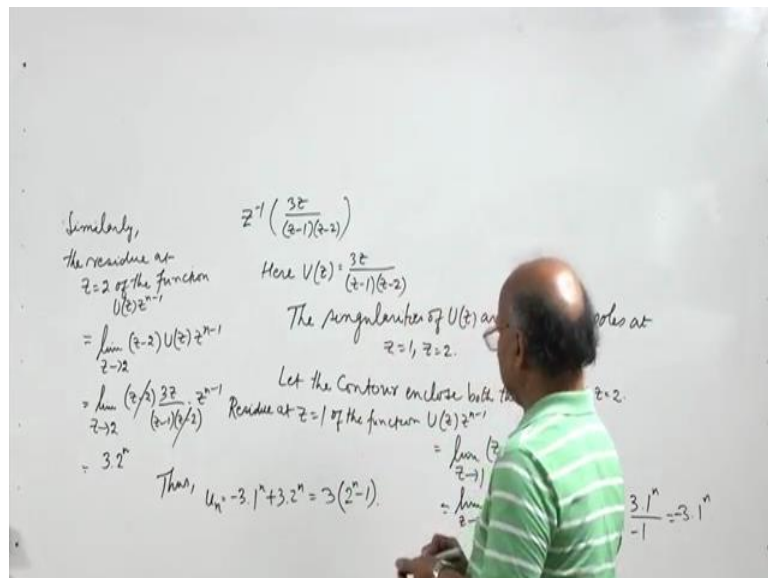 Similarly,
the residue at
z=2 of the function
U(z)z^{n-1}
= lim_{z→2} (z-2) U(z) z^{n-1}
= lim_{z→2} (z-2) 3z/((z-1)(z-2)) . z^{n-1}
= 3.2^n
Z^{-1}(3z/((z-1)(z-2)))
Here U(z) = 3z/((z-1)(z-2))
The singularities of U(z) poles at
z=1, z=2.
Let the Contour enclose both z=2.
Residue at z=1 of the function U(z) z^{n-1}
= lim_{z→1} (z
= lim 3.1^n/-1 = -3.1^n
Thus, u_n = -3.1^n + 3.2^n = 3(2^n-1).